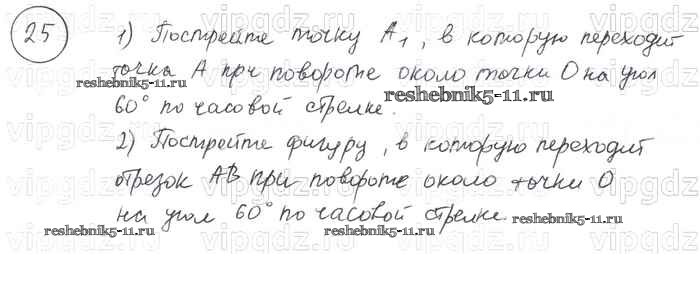 25 1) Постройте точку A₁, в которую переходит
точка A при повороте около точки O на угол
reshebnik5-11.ru
reshebnik5-11.ru
60° по часовой стрелке.
2) Постройте фигуру, в которую переходит
отрезок AB при повороте около точки O
на угол 60° по часовой стрелке.
reshebnik5-11.ru
reshebnik5-11.ru
reshebnik5-11.ru